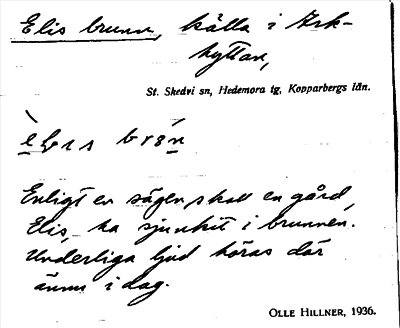 Elis brunn, källa i Ark-
hyttan,
St. Skedvi sn, Hedemora tg, Kopparbergs län.
Enligt en sägen skall en gård,
Elis, ha sjunkit i brunnen.
Underliga ljud höras där
ännu i dag.
OLLE HILLNER, 1936.